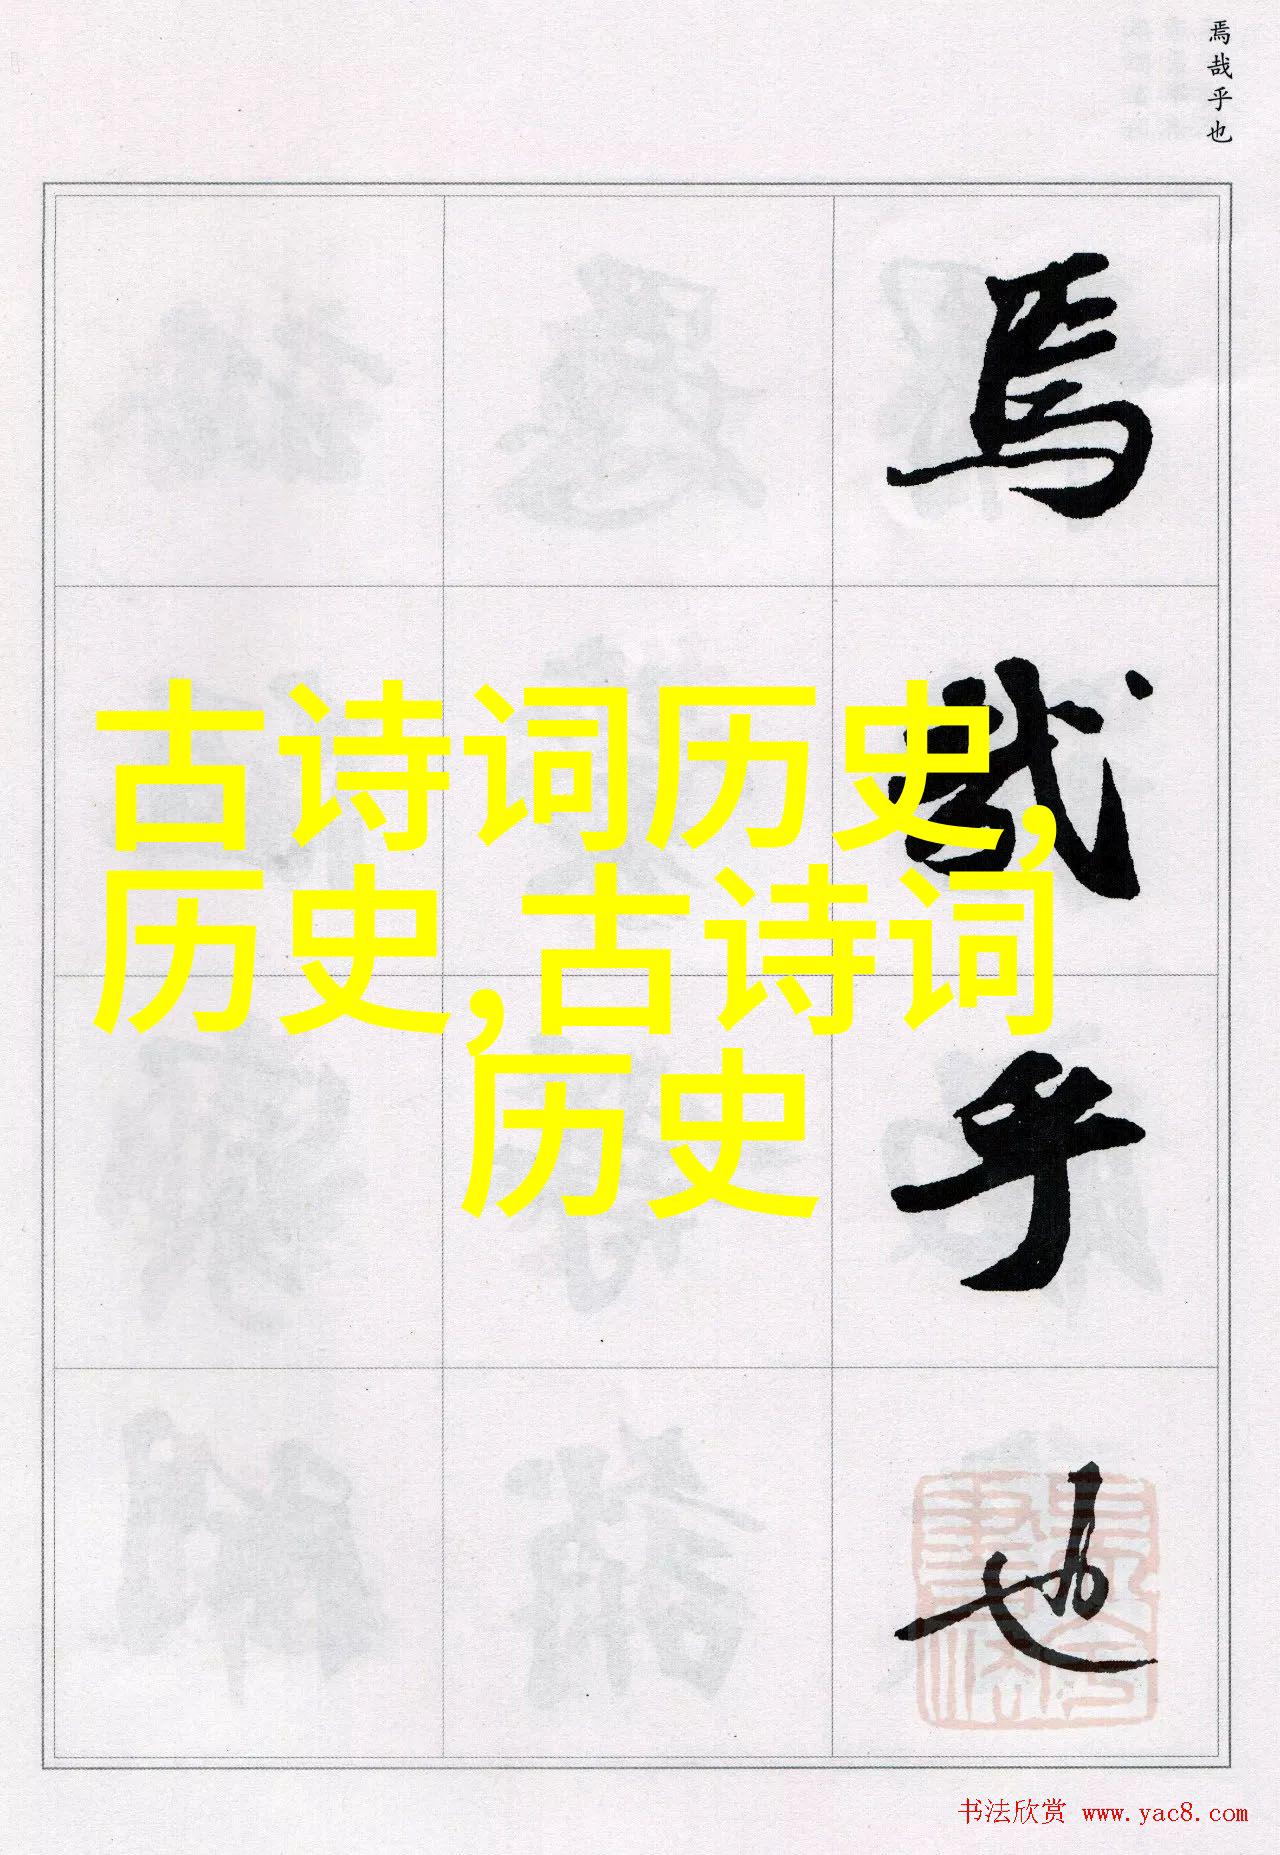 焉哉乎也
焉
哉
乎
也
古诗词历史,
历史,古诗词
历史
书法欣赏 www.yac8.com